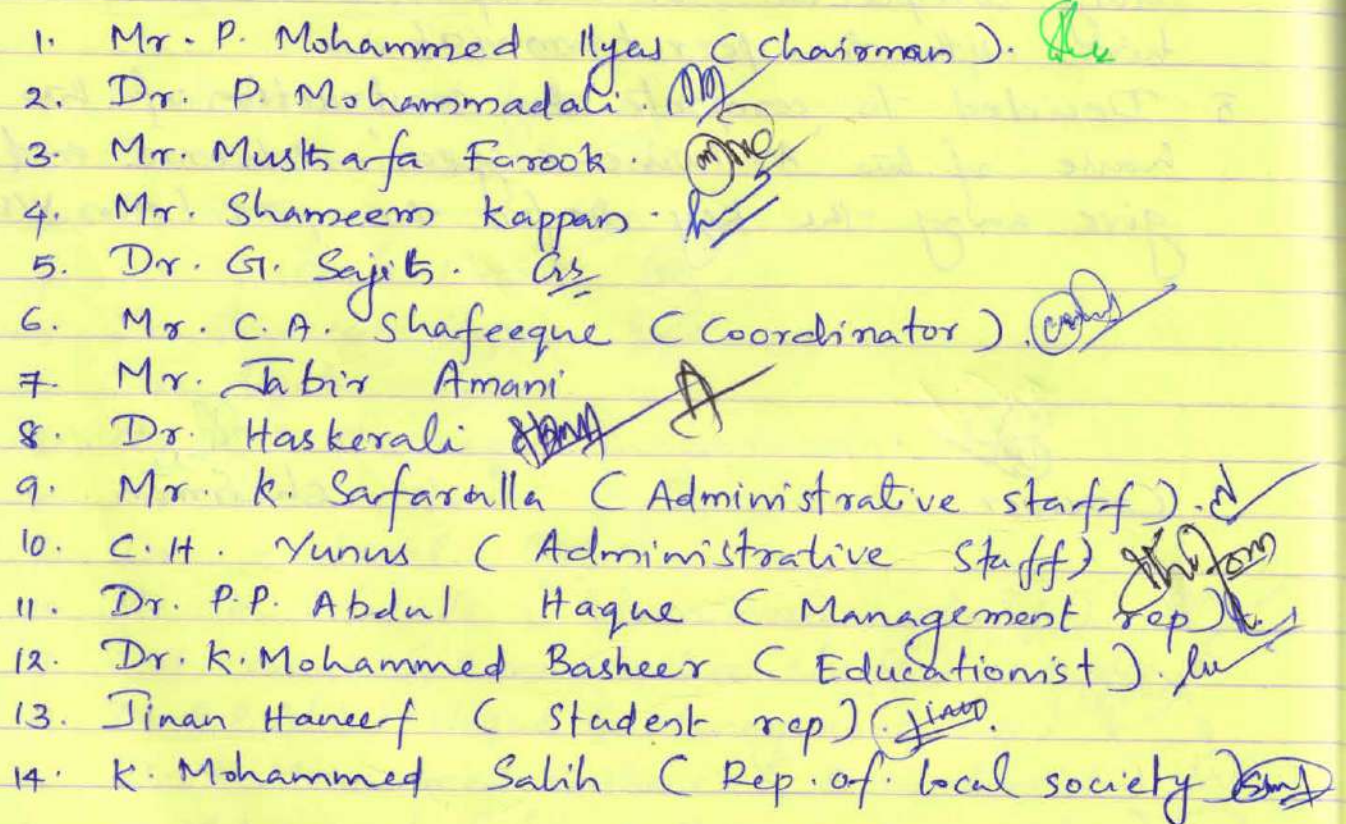 1. Mr. P. Mohammed Ilyas (Chairman).
2. Dr. P. Mohammadali.
3. Mr. Musthafa Farook.
4. Mr. Shameem Kappan.
5. Dr. G. Sajith. GS
6. Mr. C.A. Shafeeque (Coordinator).
7. Mr. Jabir Amani
8. Dr. Haskerali
9. Mr. K. Safarulla (Administrative staff).
10. C.H. Yunus (Administrative Staff)
11. Dr. P.P. Abdul Haque (Management rep)
12. Dr. K. Mohammed Basheer (Educationist).
13. Jinan Haneef (Student rep)
14. K. Mohammed Salih (Rep. of. local society)